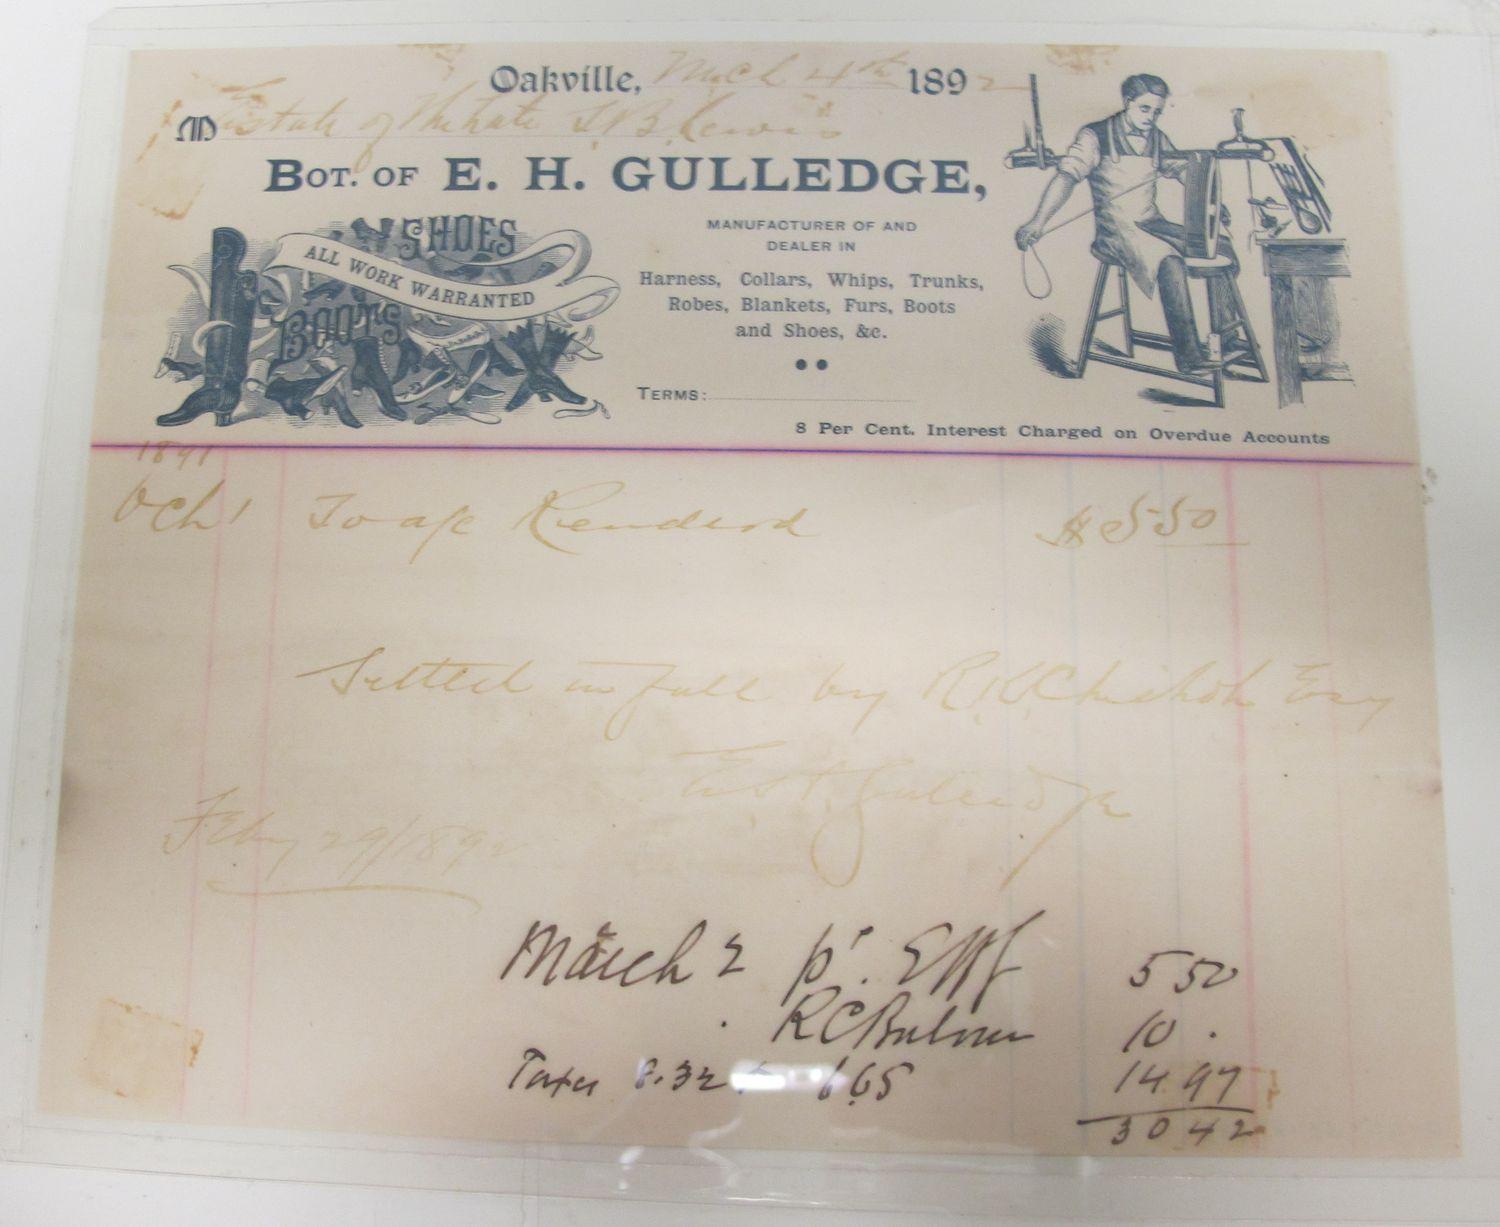 Oakville, Mch 4th 1892
M Estate of the late S. B. Lewis
BOT. OF E. H. GULLEDGE,
SHOES
ALL WORK WARRANTED
BOOTS
MANUFACTURER OF AND
DEALER IN
Harness, Collars, Whips, Trunks,
Robes, Blankets, Furs, Boots
and Shoes, &c.
TERMS:
8 Per Cent. Interest Charged on Overdue Accounts
1891
Oct 1 To a/c Renderd $5.50
Settled in full by R. K. Chisholm Esq
E. H. Gulledge
Feby 29/1892
March 2 pr. 5 50
R C Balmer 10.
Taxes 8.32 + 6.65 14.97
30 42